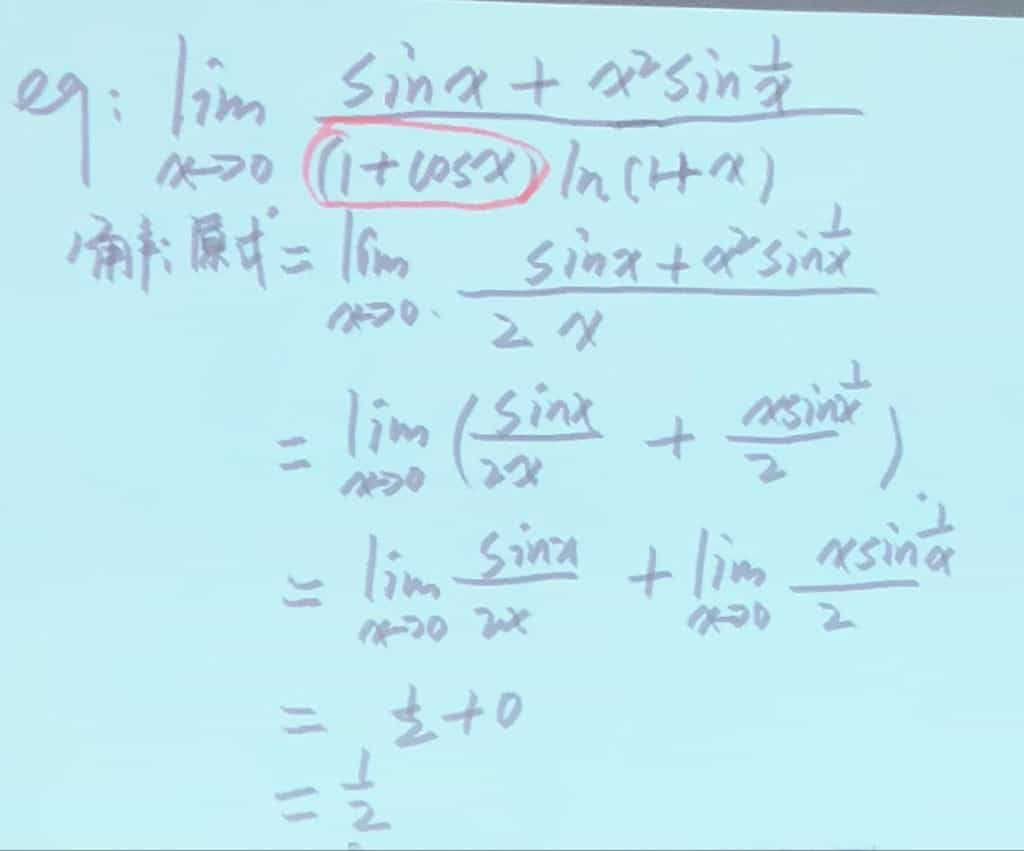 eg: lim x→0 (sinx + x²sin 1/x) / ((1+cosx) ln(1+x))
解: 原式 = lim x→0 (sinx + x²sin 1/x) / (2x)
= lim x→0 (sinx/2x + xsin 1/x / 2)
= lim x→0 sinx/2x + lim x→0 xsin 1/x / 2
= 1/2 + 0
= 1/2